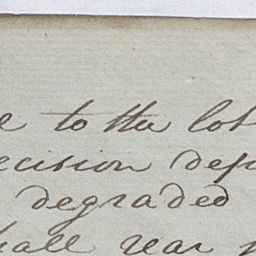 to the lot
ecision dep
degraded
hall rear